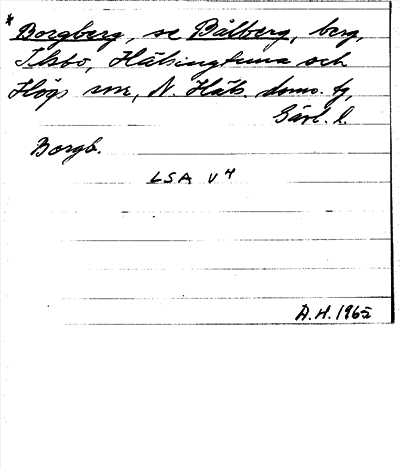 * Borgberg, se Bålberg, berg,
Ilsbo, Hälsingtuna och
Högs snr, N. Häls. doms. tg,
Gävl. l.
Borgb.
LSA V 4
A.H. 1965